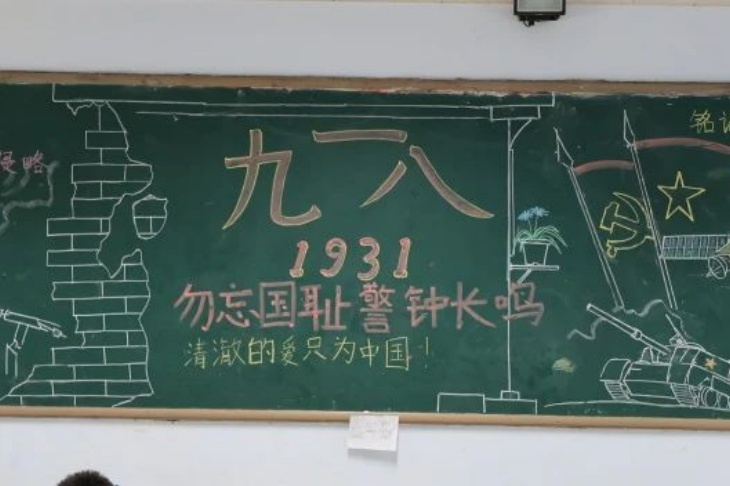 侵略
九一八
1931
勿忘国耻警钟长鸣
清澈的爱只为中国！
铭记